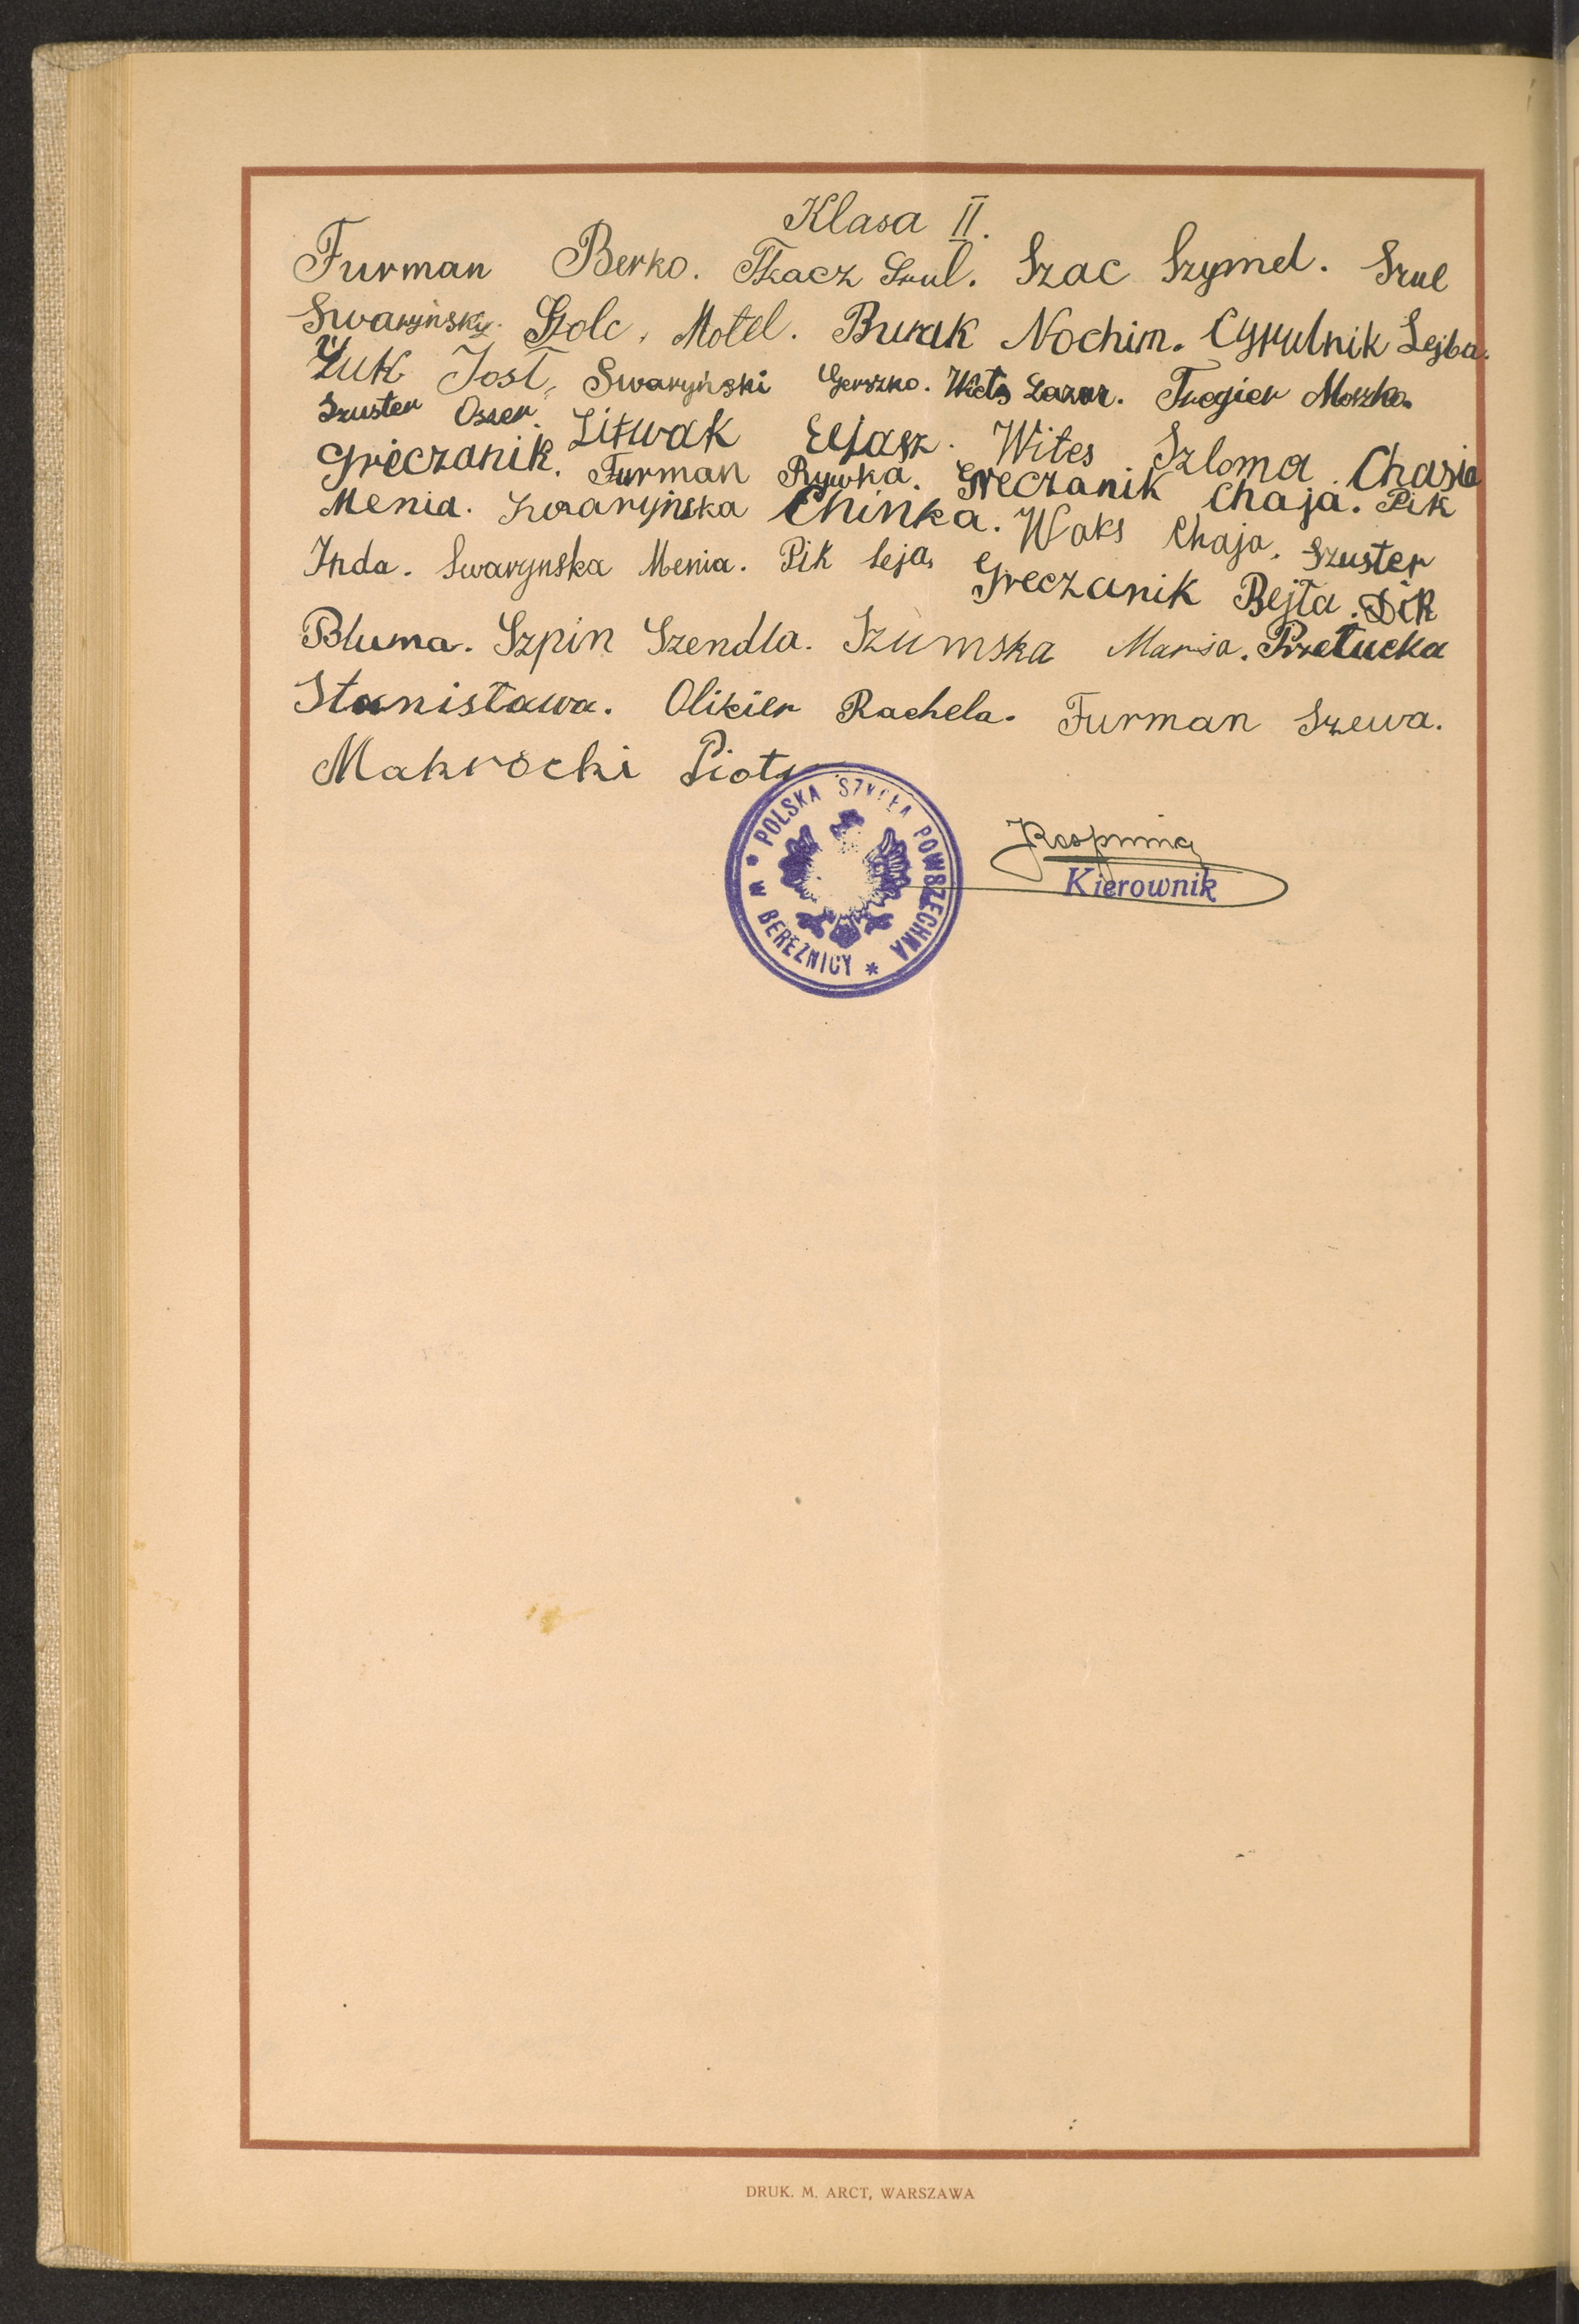 Klasa II.
Furman Berko. Tkacz Srul. Szac Szymel. Srul
Swaryński. Golc, Motel. Burak Nochim. Cyrulnik Lejba.
Żuk Josł, Swaryński Gerszko. Wites Lazar. Tregier Moszko.
Szuster Oszer. Litwak Eljasz. Wites Szloma. Chasia
Greczanik. Furman Rywka. Greczanik Chaja. Pik
Menia. Swaryńska Chinka. Waks Chaja. Szuster
Inda. Swarynska Menia. Pik Leja, Greczanik Bejła. Dik
Bluma. Szpin Szendla. Szumska Marja. Przełucka
Stanisława. Olikier Rachela. Furman Szewa.
Makrocki Piotr
* POLSKA SZKOŁA POWSZECHNA * W BEREŹNICY
Kierownik
DRUK. M. ARCT, WARSZAWA